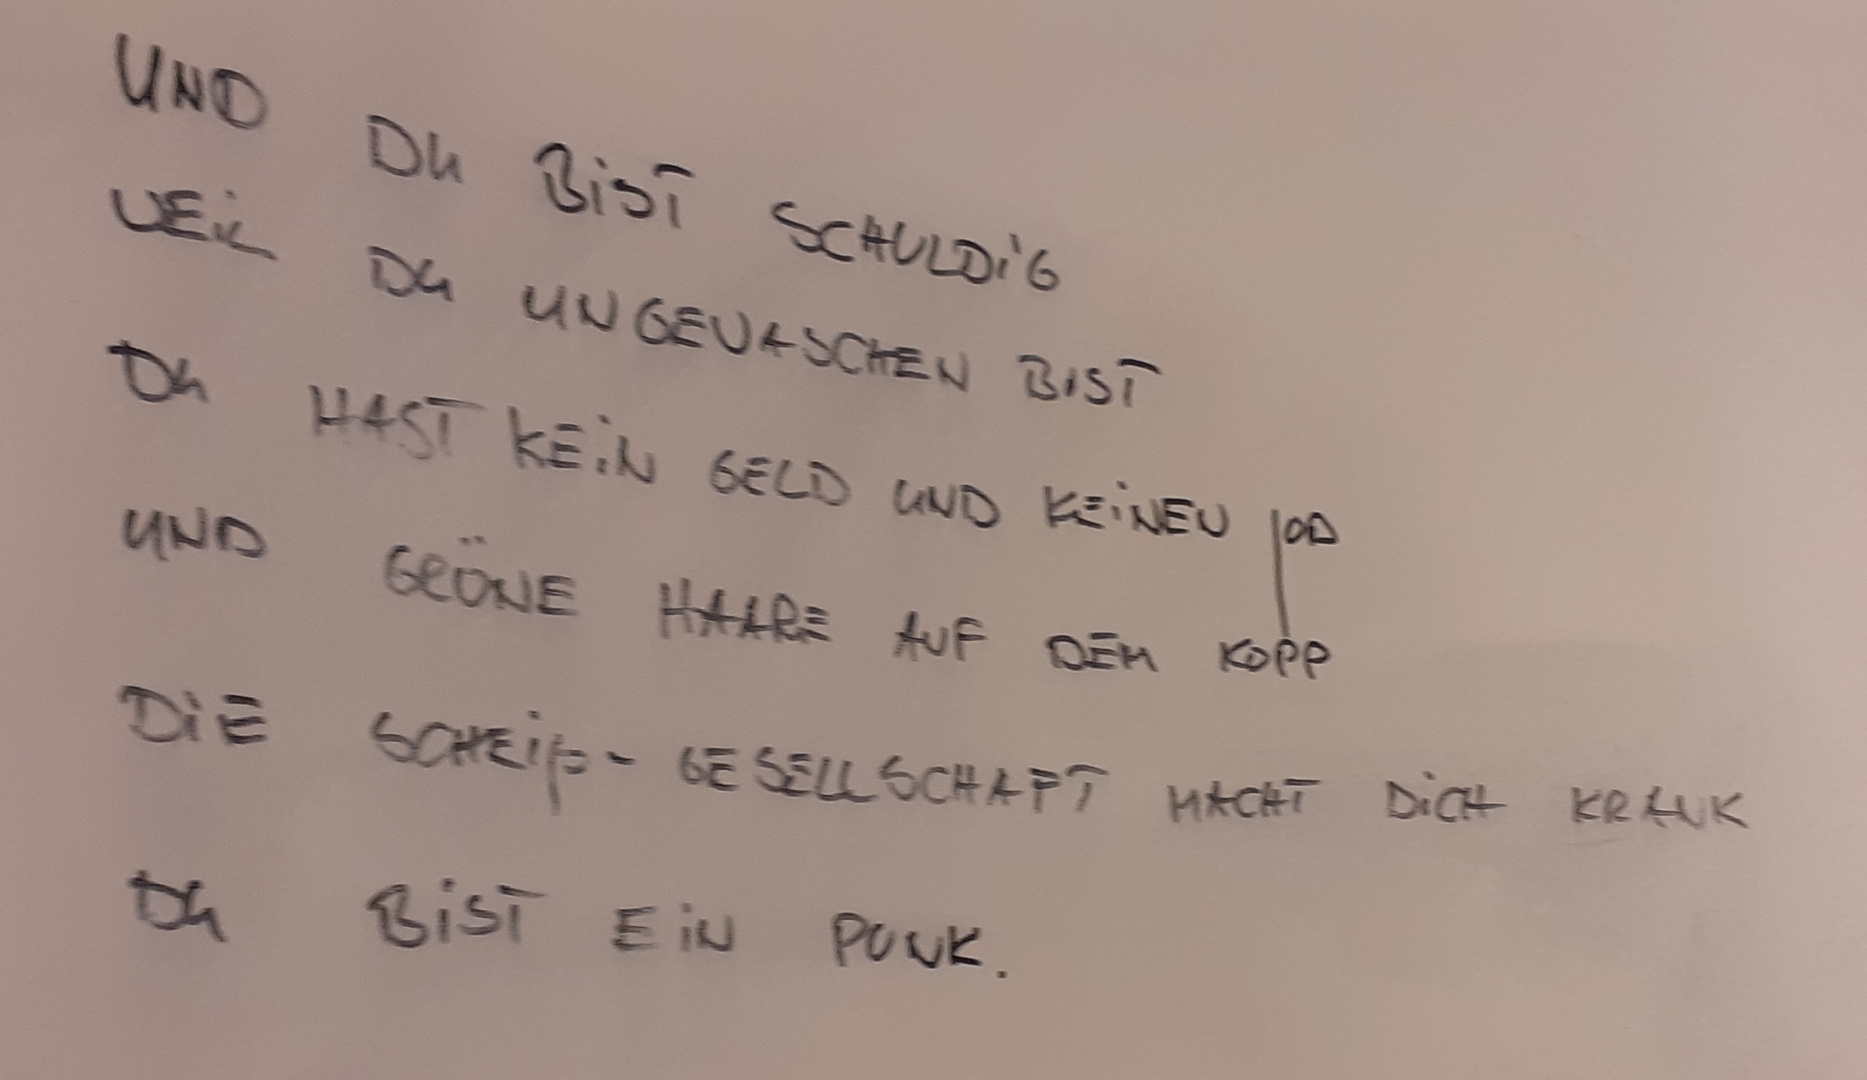 UND DU BIST SCHULDIG
WEIL DU UNGEWASCHEN BIST
DU HAST KEIN GELD UND KEINEN JOB
UND GRÜNE HAARE AUF DEM KOPP
DIE SCHEIß-GESELLSCHAFT MACHT DICH KRANK
DU BIST EIN PUNK.